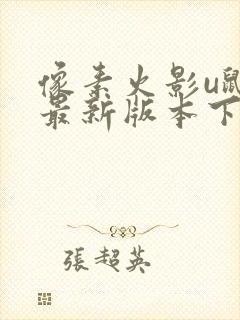 像素火影u鼠
最新版本下
張超英